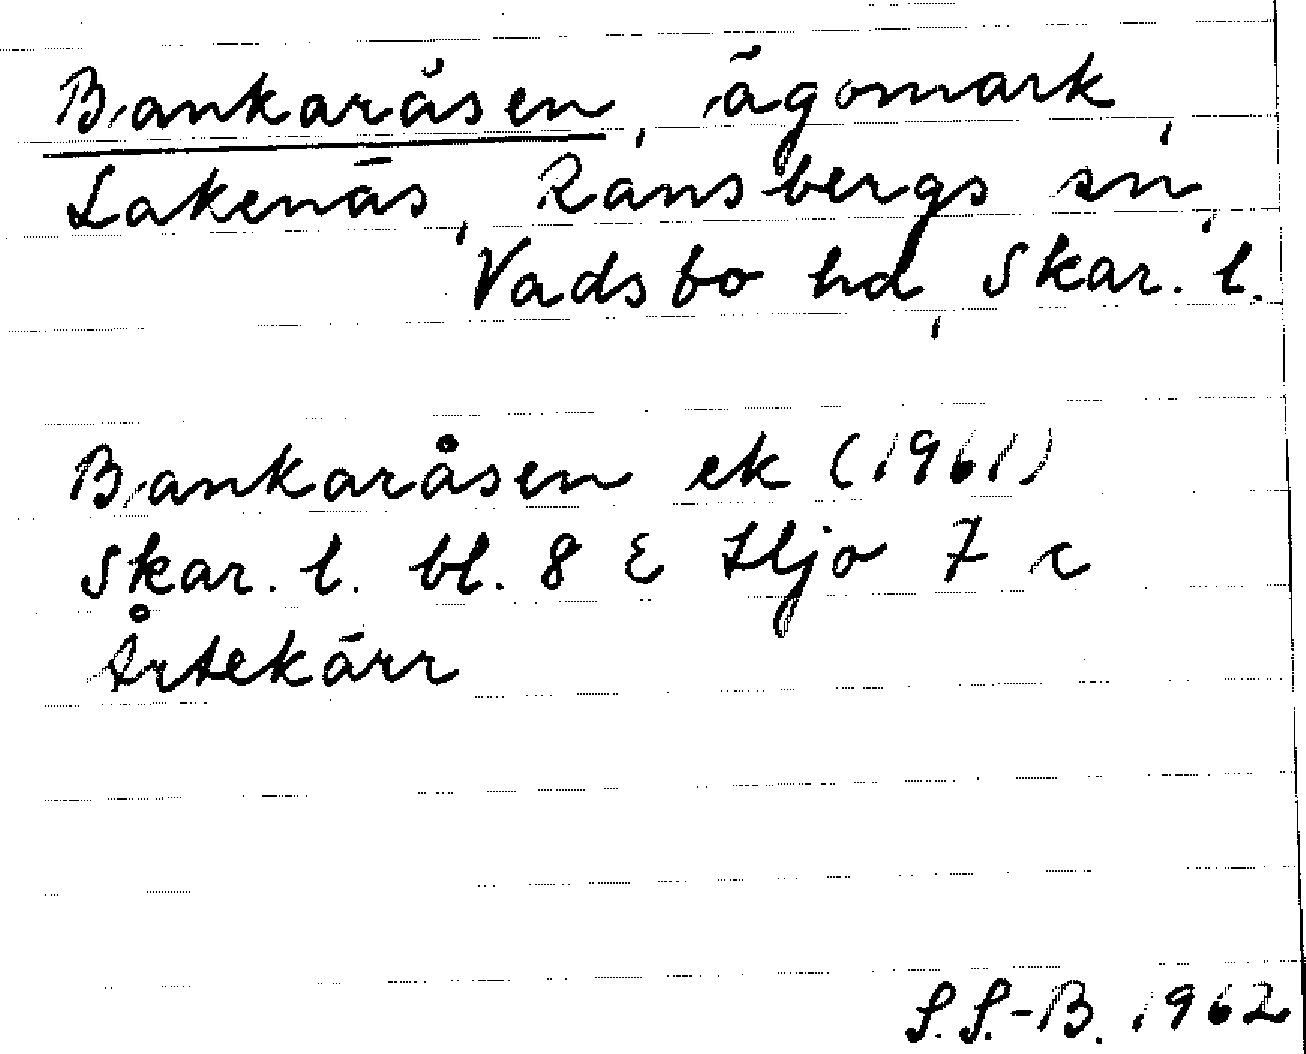 Bankaråsen, ägomark,
Lakenäs, Ransbergs sn,
Vadsbo hd, Skar. l.
Bankaråsen ek (1961)
Skar. l. bl. 8 E Hjo 7 c
Årtekärr
S.S.-B. 1962